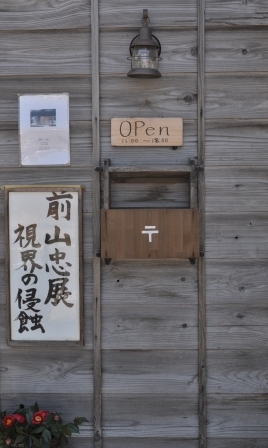 OPen
11:00 〜 18:00
〒
前山忠展
視界の侵蝕